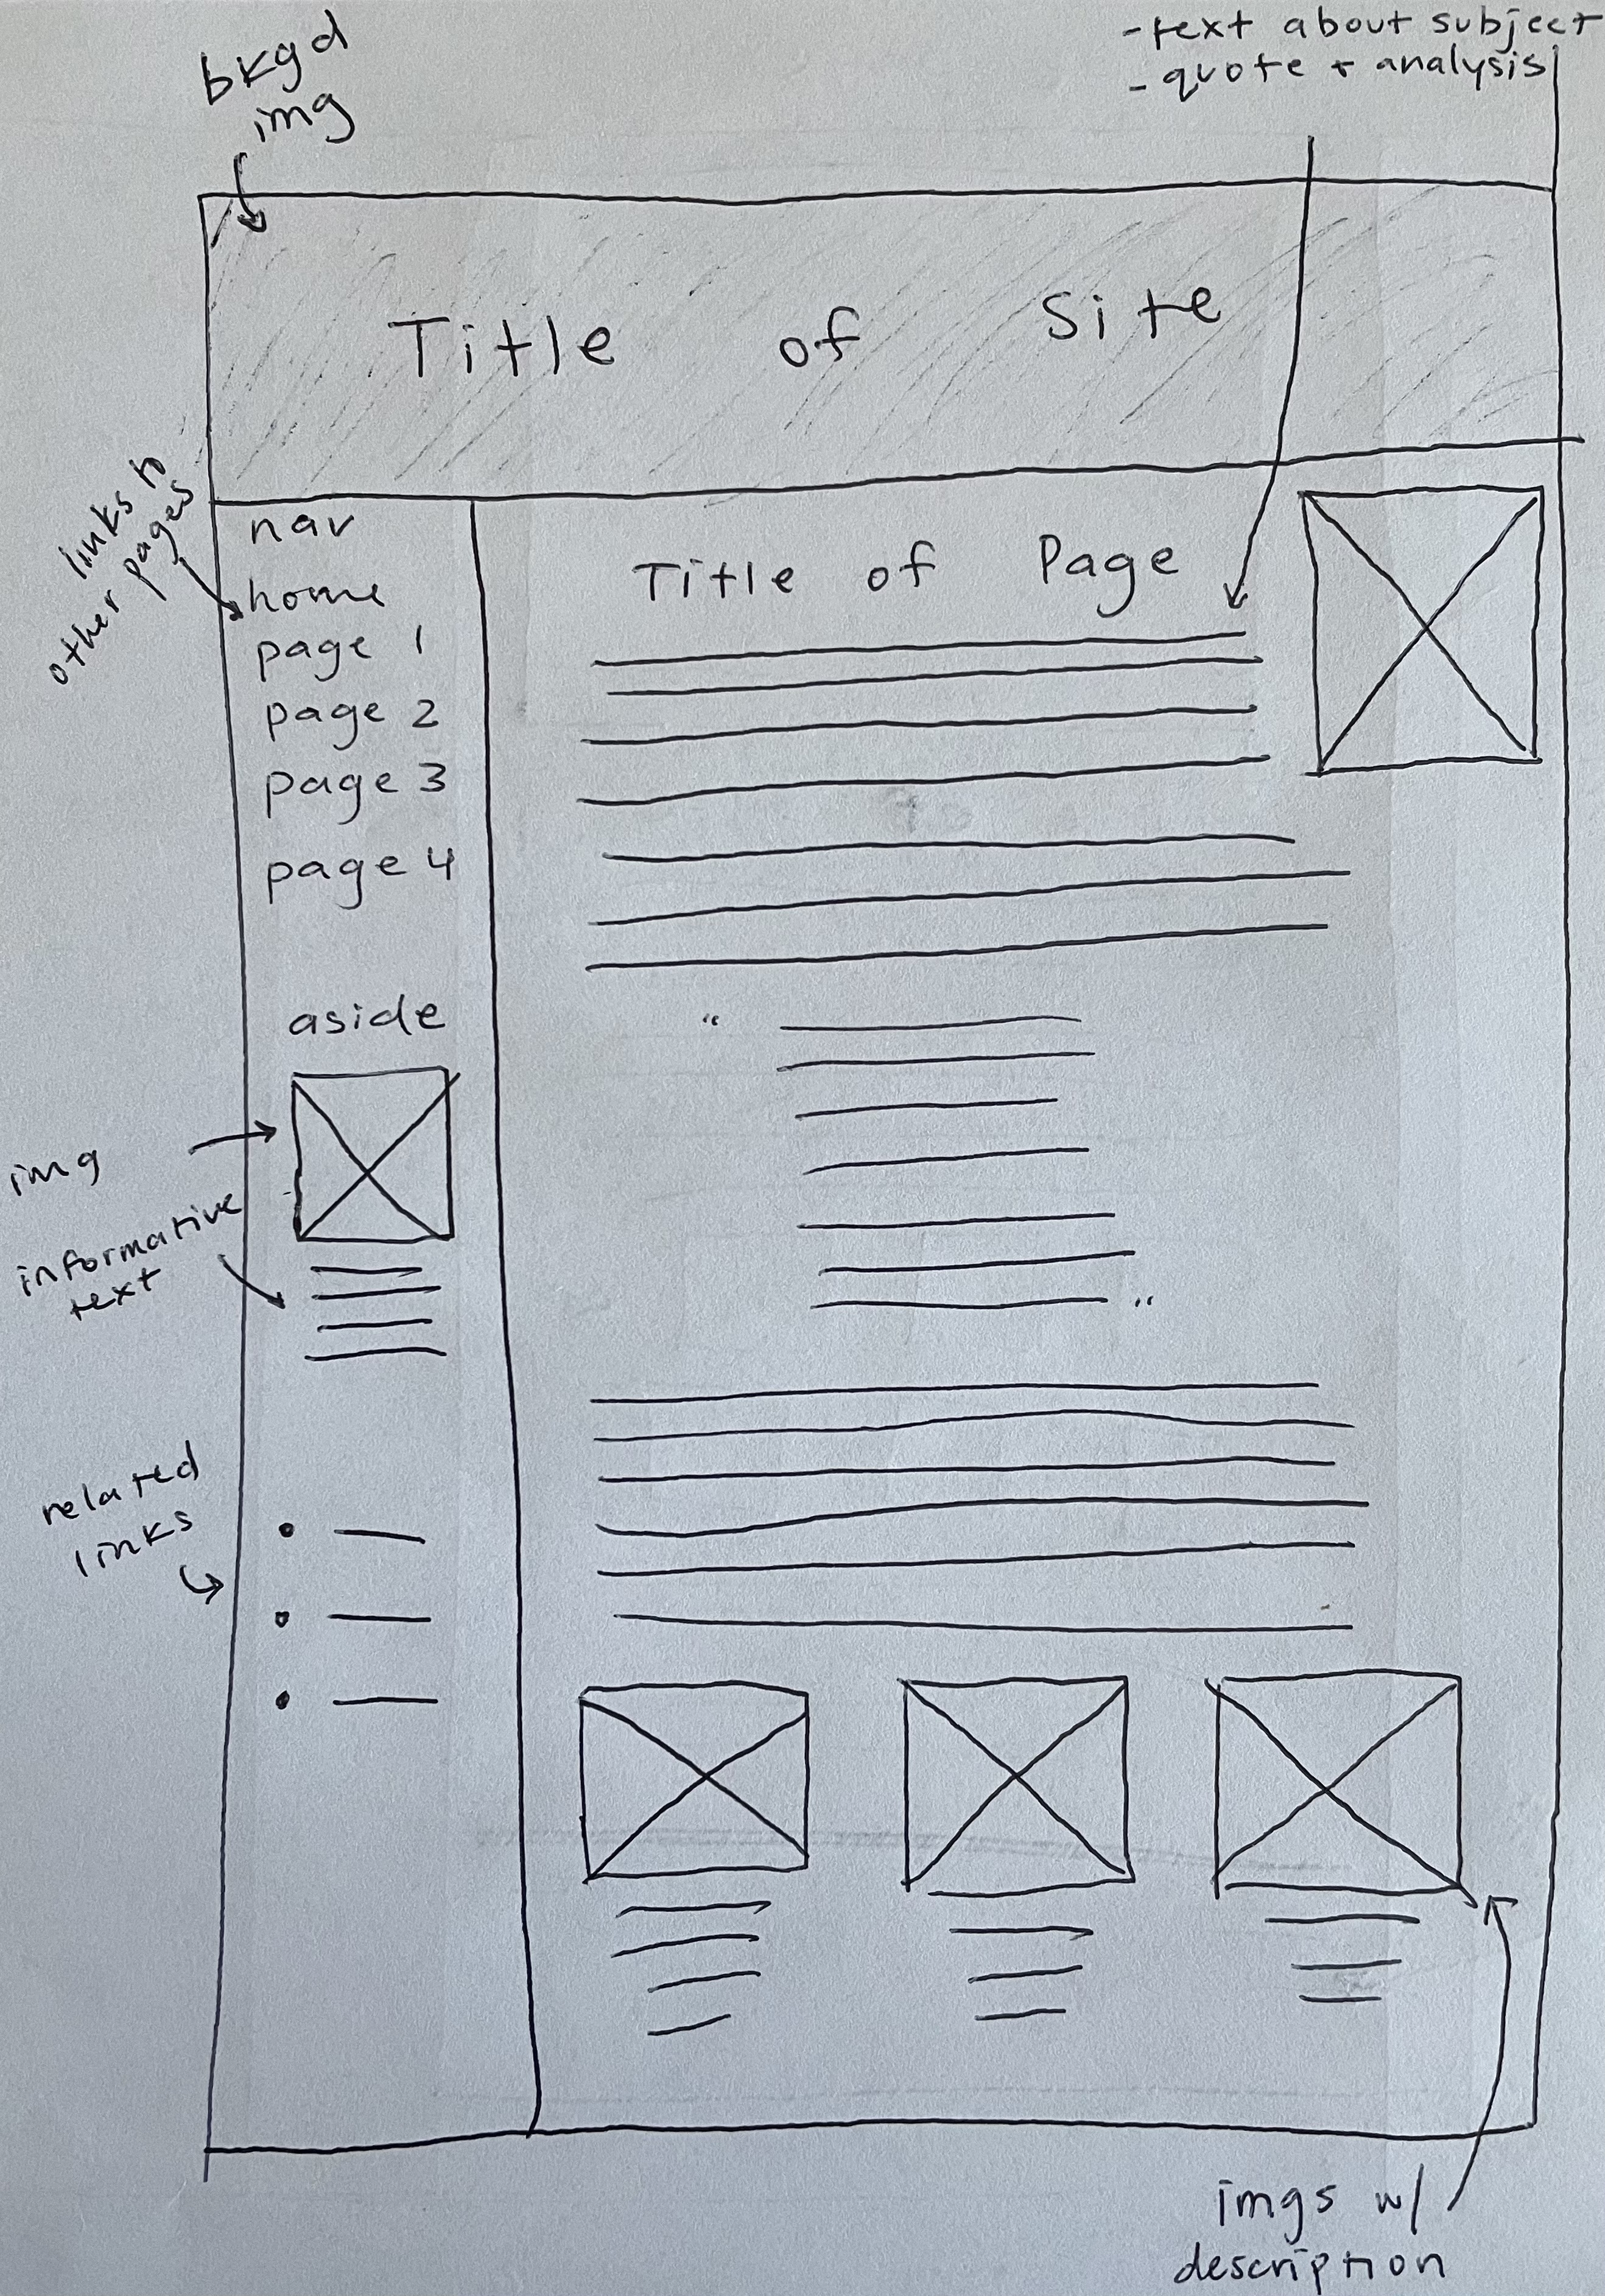 bkgd
img
-text about subject
- quote + analysis
Title of Site
links to
other pages
nav
home
page 1
page 2
page 3
page 4
Title of Page
aside
img
informative
text
“
“
related
links
imgs w/
description